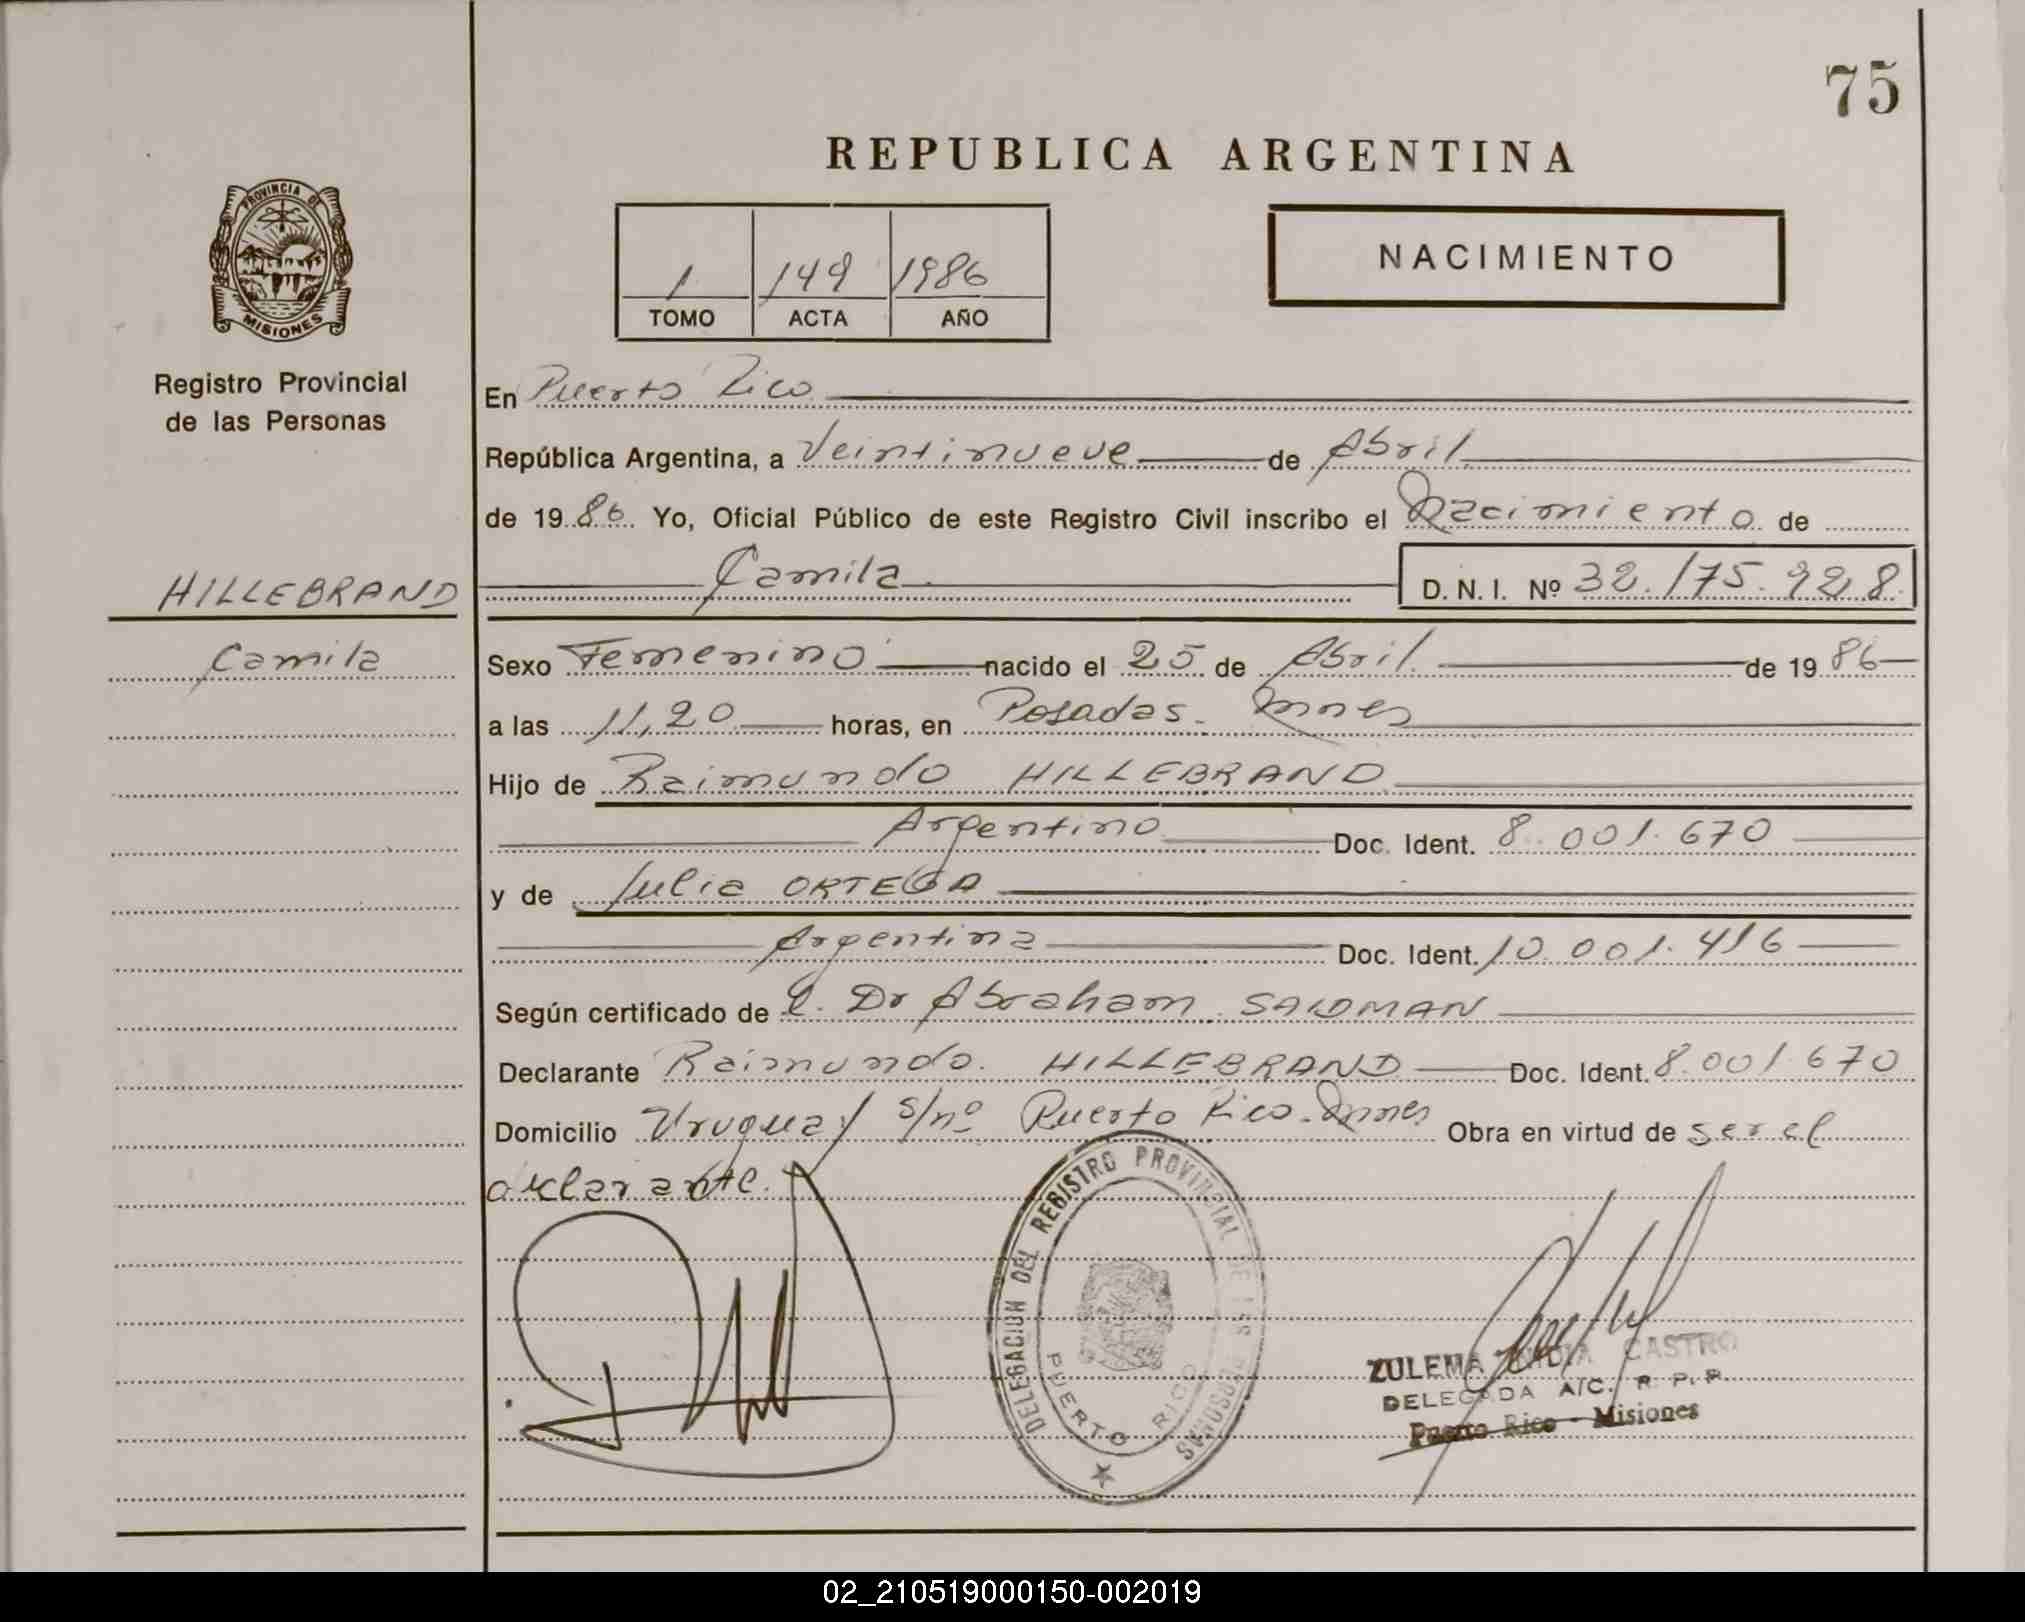 75
REPUBLICA ARGENTINA
PROVINCIA DE
MISIONES
Registro Provincial
de las Personas
1 149 1986
TOMO ACTA AÑO
NACIMIENTO
En Puerto Rico
República Argentina, a Veintinueve de Abril
de 1986. Yo, Oficial Público de este Registro Civil inscribo el Nacimiento de
HILLEBRAND
Camila
Camila D. N. I. Nº 32.175.928
Sexo Femenino nacido el 25 de Abril de 1986
a las 11,20 horas, en Posadas. Mnes
Hijo de Raimundo HILLEBRAND
Argentino Doc. Ident. 8.001.670
y de Julia ORTEGA
Argentina Doc. Ident. 10.001.416
Según certificado de l. Dr Abraham SALOMAN
Declarante Raimundo HILLEBRAND Doc. Ident. 8.001.670
Domicilio Uruguay s/nº Puerto Rico. Mnes Obra en virtud de ser el
declarante.
DELEGACION DEL REGISTRO PROVINCIAL DE LAS PERSONAS
PUERTO RICO
ZULEMA CASTRO
DELEGADA A/C. R. P. P.
Puerto Rico - Misiones
02_210519000150-002019